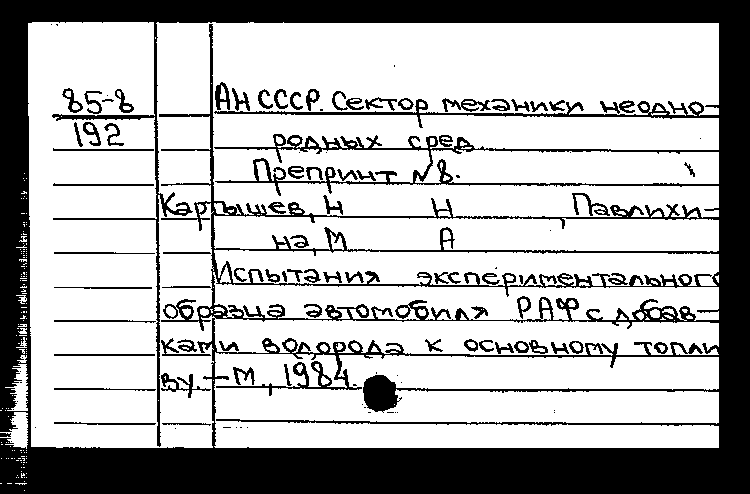 85-8
192
АН СССР. Сектор механики неодно-
родных сред.
Препринт №8.
Карпышев, Н Н , Павлихи-
на, М А
Испытания экспериментального
образца автомобиля РАФ с добав-
ками водорода к основному топли
ву. - М., 1984.